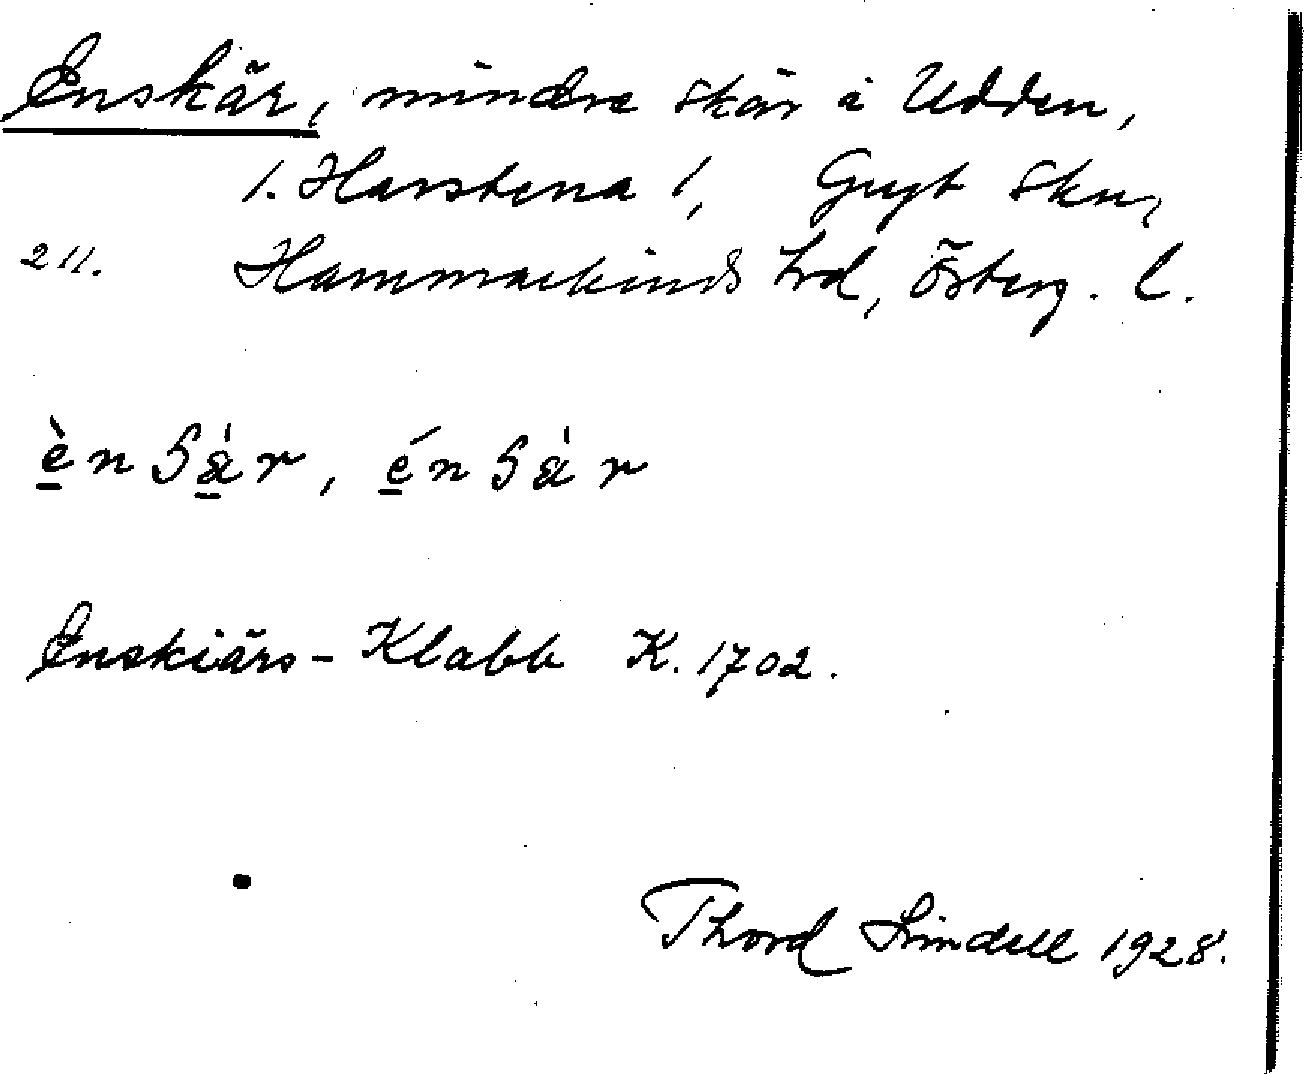 Enskär, mindre skär i Udden,
1. Harstena 1, Gryt Skn,
211. Hammarkinds hd, Österg. l.
èn Sär, én Sär
Enskiärs-Klabb K. 1702.
Thord Lindell 1928.